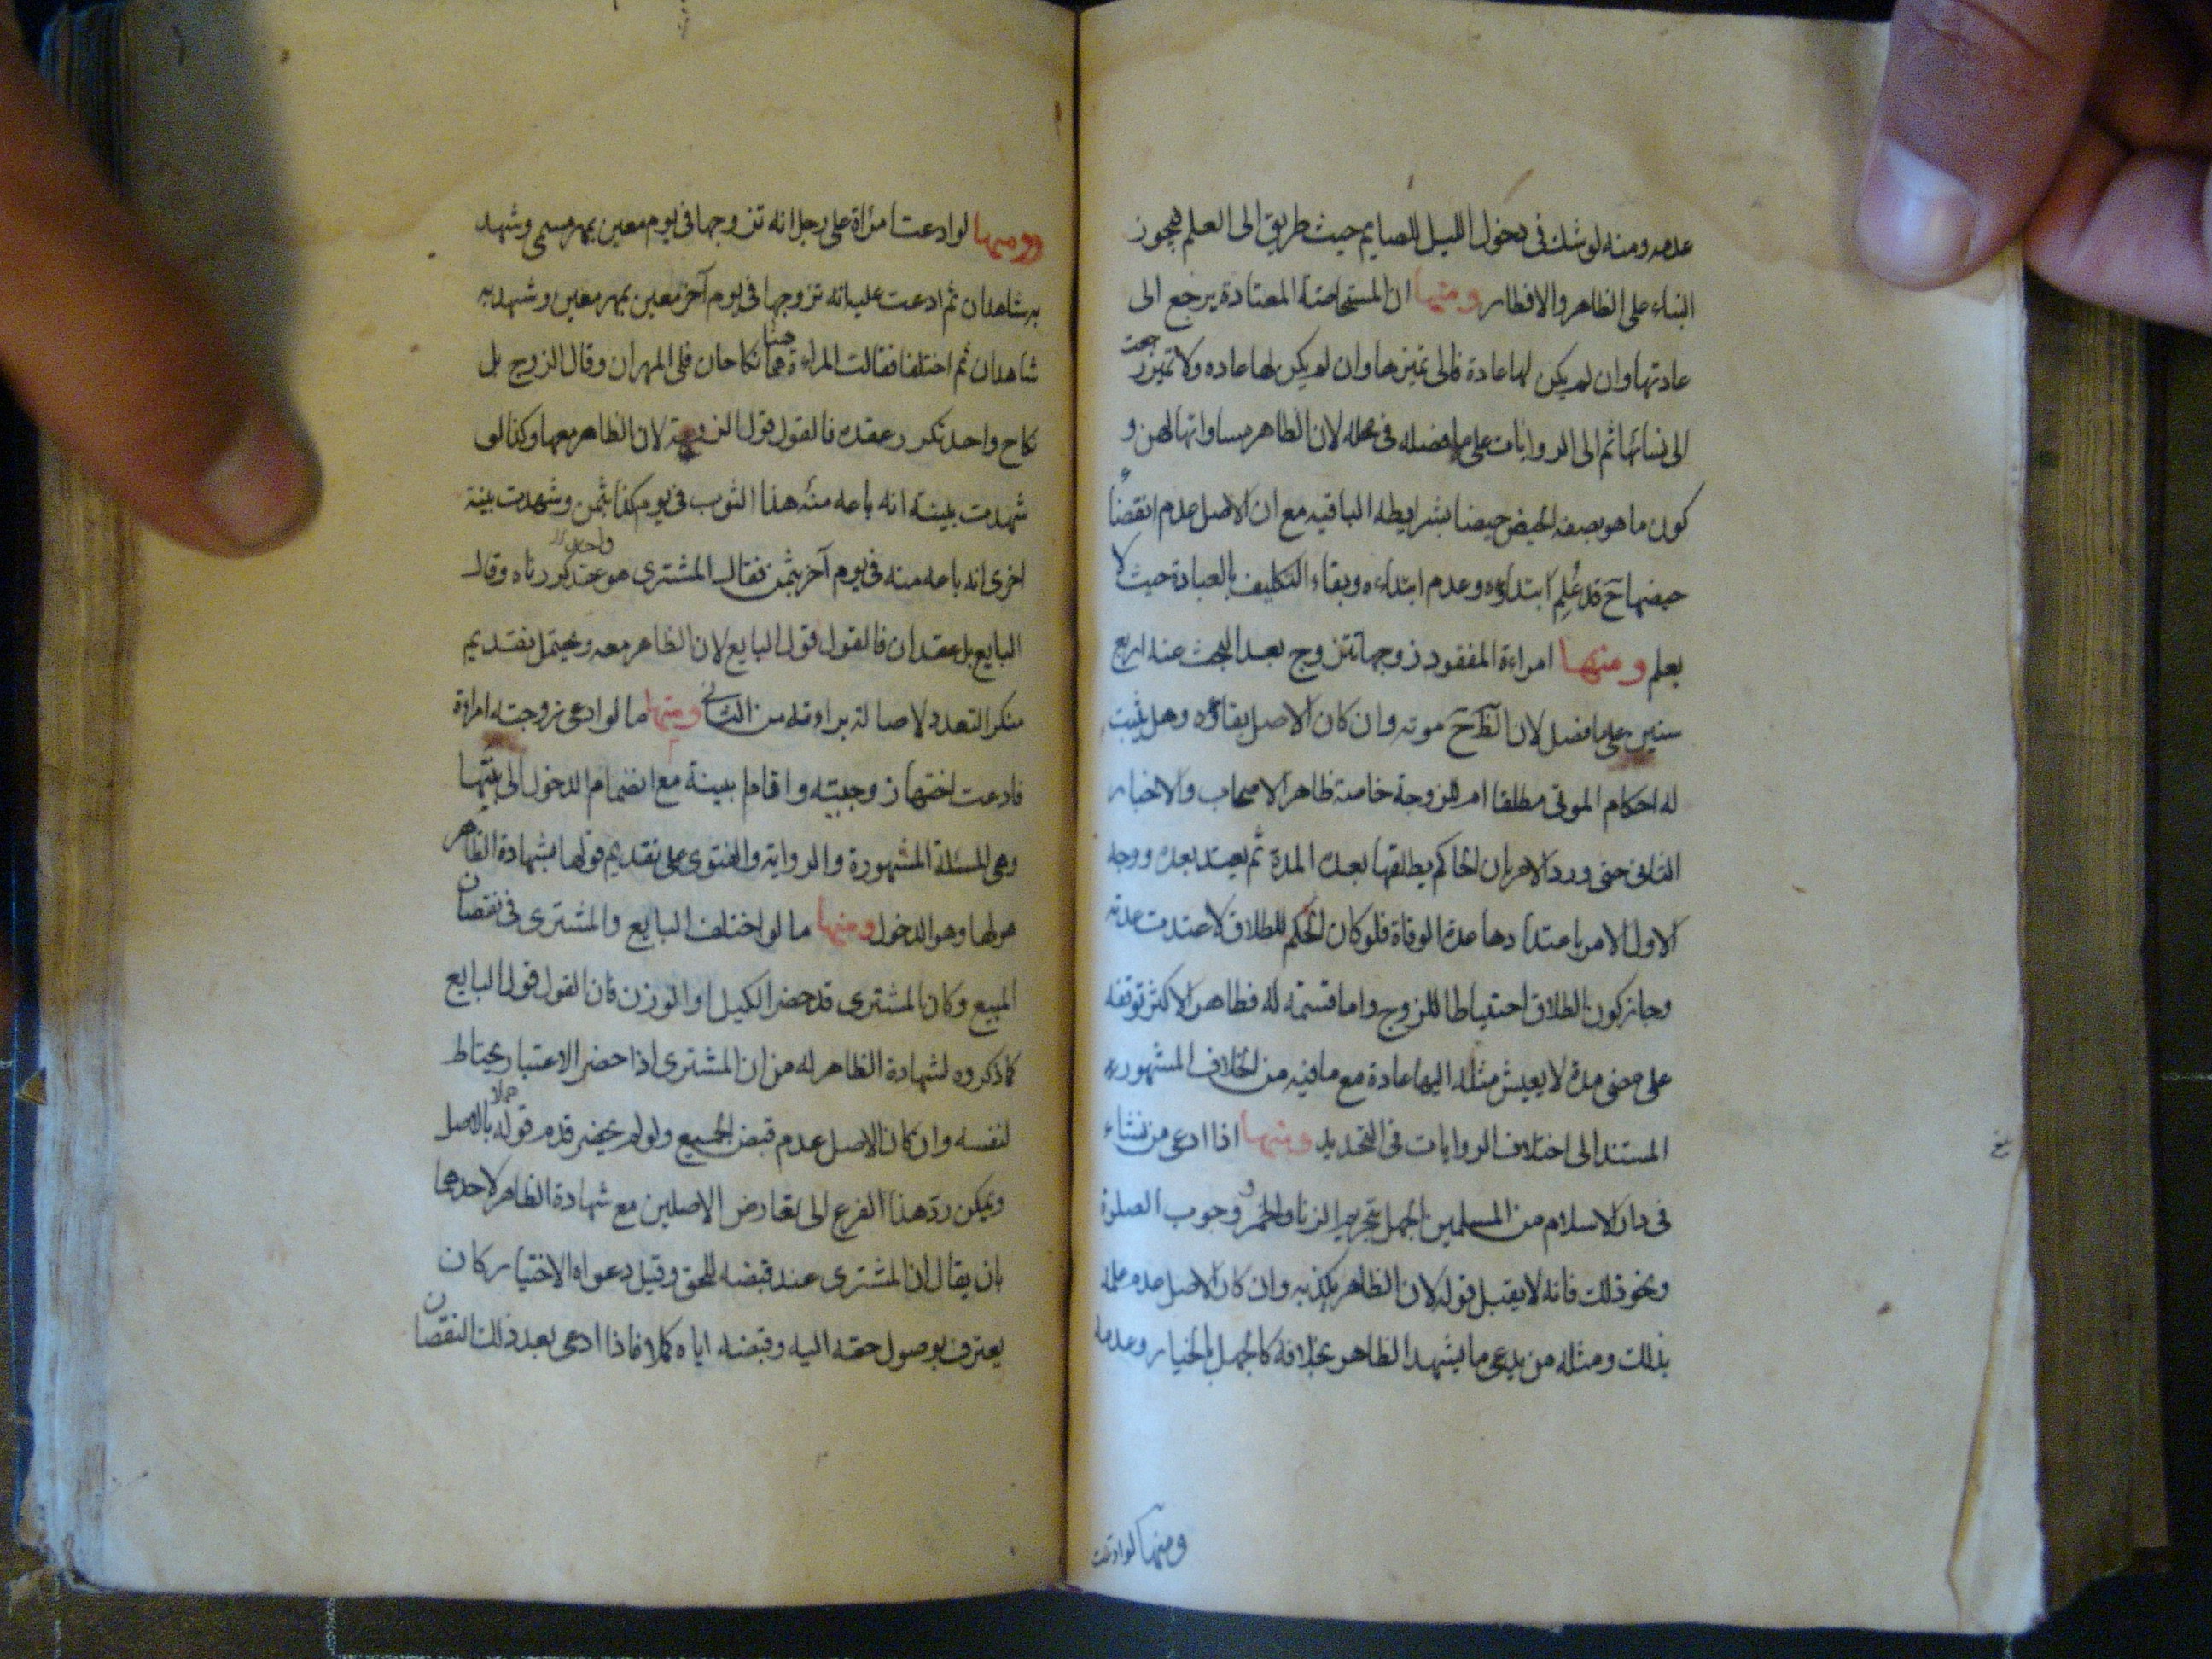 عدمه ومنه لو شك في دخول الليل للصايم حيث طريق الى العلم فيجوز
البناء على الظاهر والافطار ومنها ان المستحاضة المعتادة يرجع الى
عادتها وان لم يكن لها عادة فالى تميزها وان لم يكن لها عاده ولا تميز رجعت
الى نسائها ثم الى الروايات على ما فصله في محله لان الظاهر مساواتها لهن و
كون ما هو بصفه الحيض حيضا بشرايطه الباقيه مع ان الاصل عدم انقضاء
حيضها ح قد علم ابتداؤه وعدم ابتداءه وبقاء التكليف بالعبادة حيث لا
يعلم ومنها امراءة المفقود زوجها تتزوج بعد البحث عنه اربع
سنين على ما فصل لان الظ ح موته وان كان الاصل بقاؤه وهل يثبت
له احكام الموتى مطلقا ام للزوجة خاصة ظاهر الاصحاب والاخبار
الثاني حتى ورد الامر بان الحاكم يطلقها بعد المدة ثم يعتد بعده ووجه
الاول الامر باعتدادها عدة الوفاة فلو كان الحكم للطلاق لاعتدت عدته
وجاز كون الطلاق احتياطا للزوج واما قسمة له فظاهر الاكثر توقفه
على مضى مدة لا يعيش مثله اليها عادة مع ما فيه من الخلاف المشهور
المستند الى اختلاف الروايات في التحديد ومنها اذا ادعى من نشاء
في دار الاسلام من المسلمين الجهل بتحريم الزنا والخمر ووجوب الصلوة
ونحو ذلك فانه لا يقبل قوله لان الظاهر يكذبه وان كان الاصل عدم علمه
بذلك ومثله من يدعى ما يشهد الظاهر بخلافه كالجهل بالخيار وعدمه
ومنها لو ادعت
ومنها لو ادعت امراة على رجل انه تزوجها في يوم معين بمهر مسمى وشهد
به شاهدان ثم ادعت عليه انه تزوجها في يوم آخر معين بمهر معين وشهد به
شاهدان ثم اختلفا فقالت المراءة هما نكاحان فلى المهران وقال الزوج بل
نكاح واحد تكرر عقده فالقول قول الزوجة لان الظاهر معها وكذا لو
شهدت بينة انه باعه منه هذا الثوب في يوم كذا بثمن وشهدت بينة
اخرى انه باعه منه في يوم آخر بثمن فقال المشترى هو عقد واحد كررناه وقال
البايع بل عقدان فالقول قول البايع لان الظاهر معه ويحتمل تقديم
منكر التعدد لاصالة براءته من الثاني ومنها ما لو ادعى زوجته امراة
فادعت اختها زوجيته واقاما بينة مع انضمام الدخول الى بينتها
وهى المسئلة المشهورة والرواية والفتوى على تقديم قولها بشهادة الظاهر
هو لها وهو الدخول ومنها ما لو اختلف البايع والمشترى في نقصان
المبيع وكان المشترى قد حضر الكيل او الوزن فان القول قول البايع
كما ذكروه لشهادة الظاهر له من ان المشترى اذا حضر الاعتبار يحتاط
لنفسه وان كان الاصل عدم قبض الجميع ولو لم يحضر قدم قوله عملا بالاصل
ويمكن رد هذا الفرع الى تعارض الاصلين مع شهادة الظاهر لاحدهما
بان يقال ان المشترى عند قبضه للحق وقبل دعواه الاختيار كان
يعترف بوصول حقه اليه وقبضه اياه كملا فاذا ادعى بعد ذلك النقصان